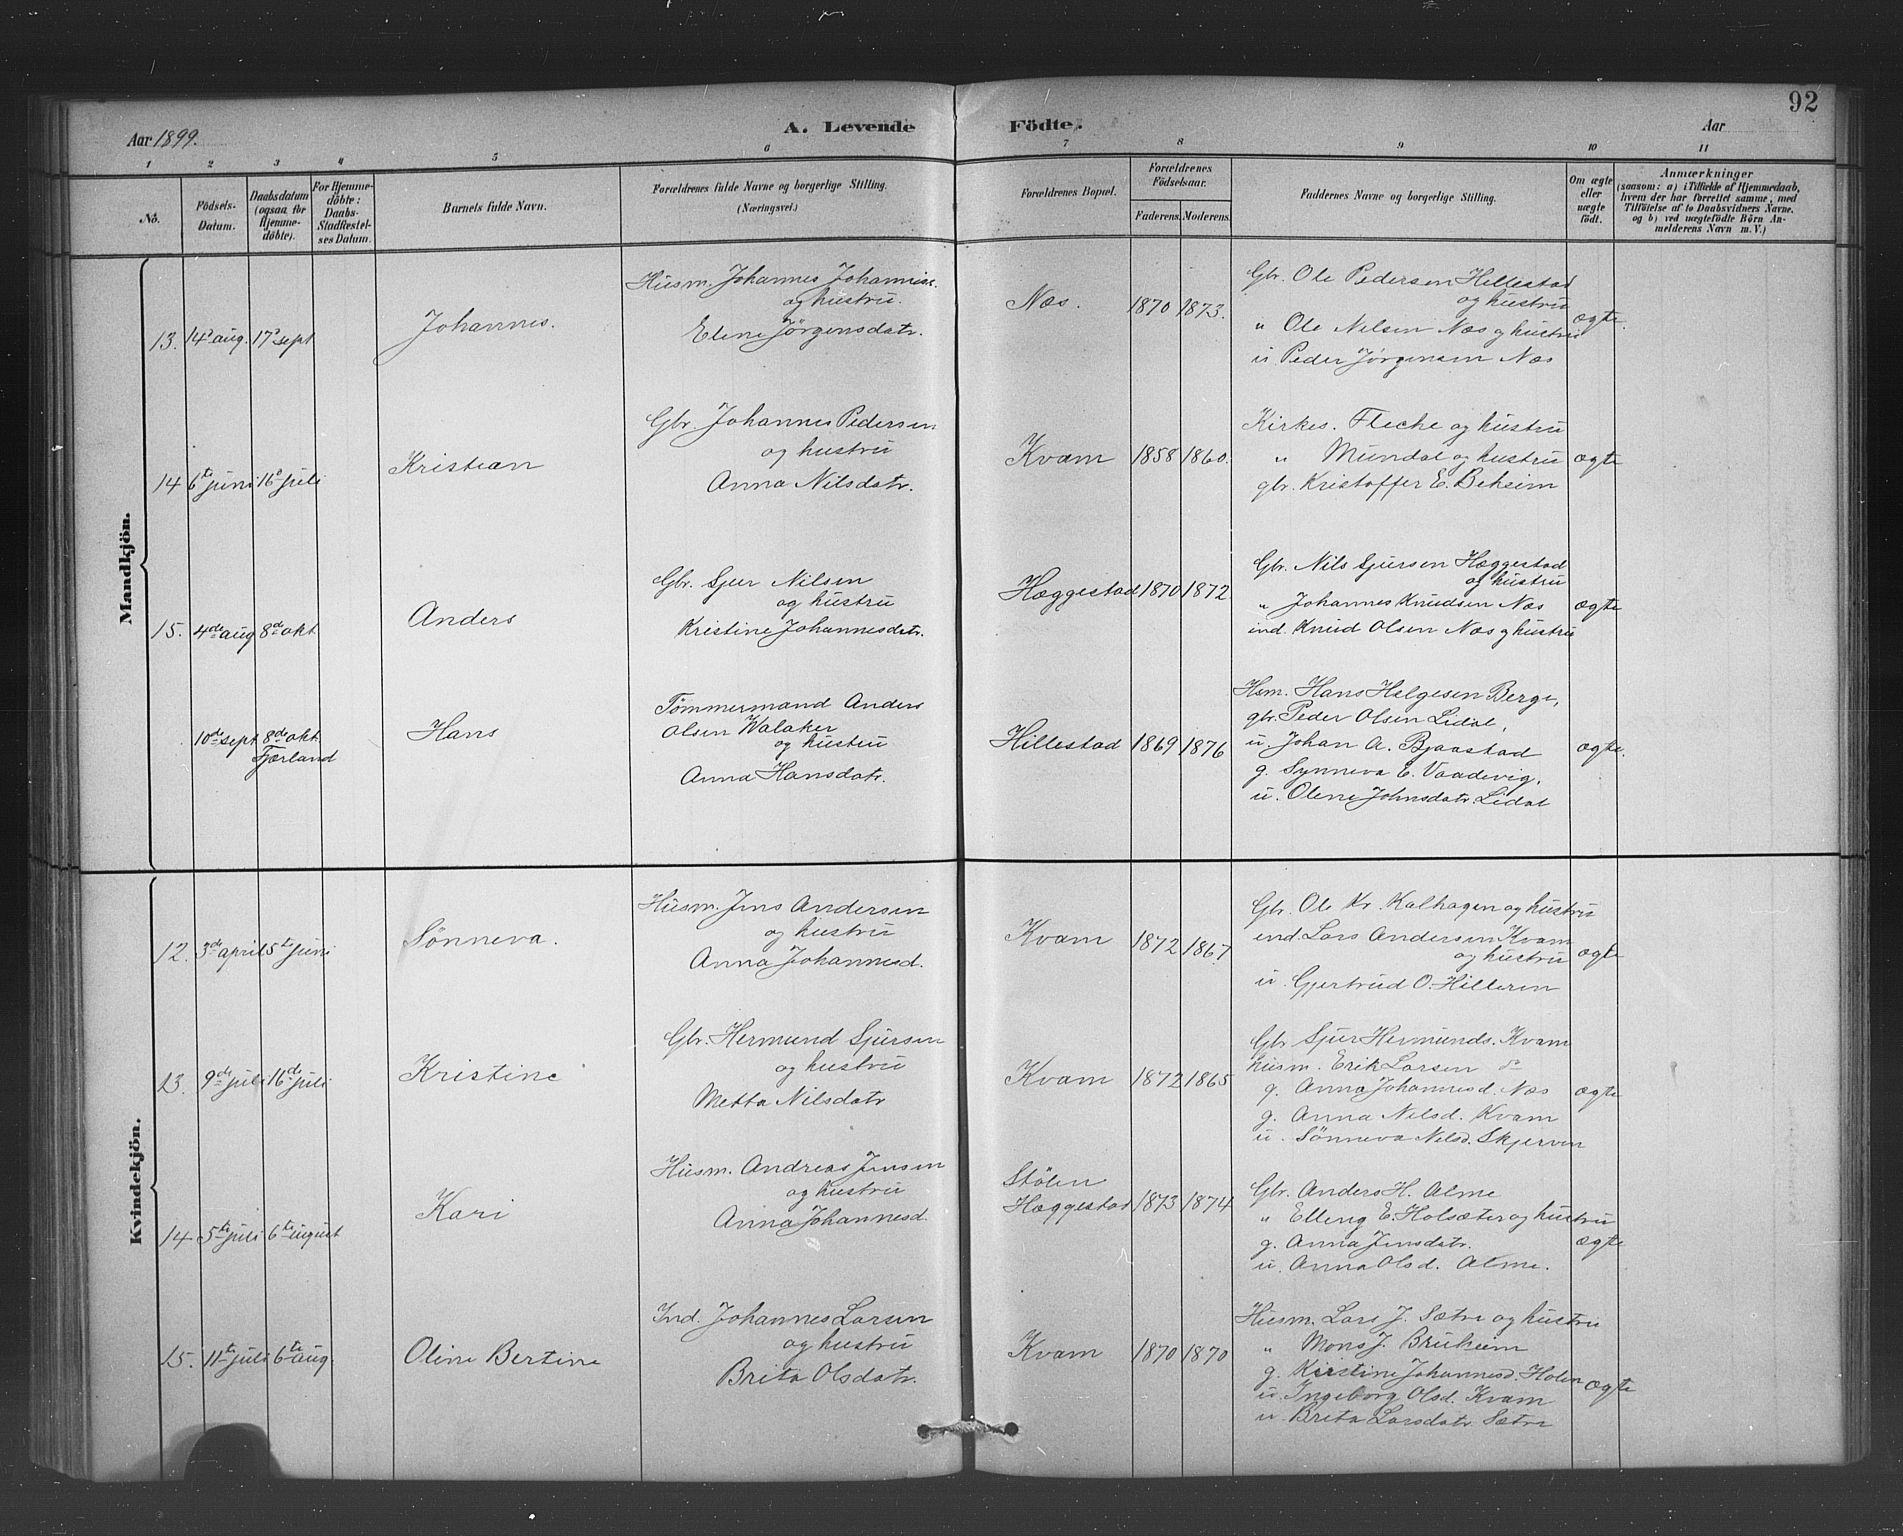 92
Aar 1899.
A. Levende Födte.
Aar
1 2 3 4 5 6 7 8 9 10 11
No.
Födsels-Datum.
Daabsdatum (ogsaa for Hjemme-döbte).
For Hjemme-döbte: Daabs-Stadfestel-ses Datum.
Barnets fulde Navn.
Forældrenes fulde Navne og borgerlige Stilling.
(Næringsvei.)
Forældrenes Bopæl.
Forældrenes Födselsaar.
Faderens. Moderens.
Faddernes Navne og borgerlige Stilling.
Om ægte eller uægte födt.
Anmærkninger
(saasom: a) i Tilfælde af Hjemmedaab, hvem der har forrettet samme, med Tilföielse af to Daabsvidners Navne, og b) ved uægtefödte Börn Anmelderens Navn m. V.)
Mandkjön.
13. 14de aug. 17de sept
Johannes.
Husm. Johannes Johanness.
og hustru.
Elene Jørgensdatr.
Næs. 1870 1873.
Gbr. Ole Pedersen Hillestad
og hustru
" Ole Nilsen Næs og hustru
u. Peder Jørgensen Næs
ægte.
14 6te juni 16de juli
Kristian
Gbr. Johannes Pedersen
og hustru
Anna Nilsdatr.
Kvam 1858 1860.
Kirkes. Fleche og hustru
" Mundal og hustru
gbr. Kristoffer E. Beheim
ægte
15. 4de aug 8de okt
Anders
Gbr. Sjur Nilsen
og hustru
Kristine Johannesdatr.
Hæggestad 1870 1872
Gbr. Nils Sjursen Hæggestad
og hustru
" Johannes Knudsen Næs
ind. Knud Olsen Næs og hustru
ægte
10de sept 8de okt.
Fjærland
Hans
Tømmermand Anders
Olsen Walaker
og hustru
Anna Hansdatr.
Hillestad 1869 1876
Hsm. Hans Helgesen Berge,
gbr. Peder Olsen Lidal,
u. Johan A. Bjaastad
g. Synneva E. Vaadevig,
u. Olene Johnsdatr. Lidal
ægte.
Kvindekjön.
12. 3de april 5te juni
Sønneva.
Husm. Jens Andersen
og hustru
Anna Johannesd.
Kvam 1872 1867
Gbr. Ole Kr. Kalhagen og hustru
ind. Lars Andersen Kvam
og hustru
u. Gjertrud O. Hilleren
ægte
13. 9de juli 16de juli
Kristine
Gbr. Hermund Sjursen
og hustru
Metta Nilsdatr
Kvam 1872 1865
Gbr Sjur Hermunds. Kvam
husm. Erik Larsen do
g. Anna Johannesd. Næs
g. Anna Nilsd. Kvam
u. Sønneva Nilsd. Skjerven
ægte
14 5te juli 6te august
Kari
Husm. Andreas Jensen
og hustru
Anna Johannesd.
Stølen
Hæggestad 1873 1874
Gbr. Anders H. Alme
" Elling E. Holsæter og hustru
g. Anna Jensdatr.
u. Anna Olsd. Alme.
ægte
15. 11te juli 6te aug.
Oline Bertine
Ind. Johannes Larsen
og hustru
Brita Olsdatr.
Kvam 1870 1870
Husm. Lars J. Sætre og hustru
" Mons J. Bruheim
g. Kirstine Johannesd. Holen
u. Ingeborg Olsd. Kvam
u. Brita Larsdatr. Sætre
ægte